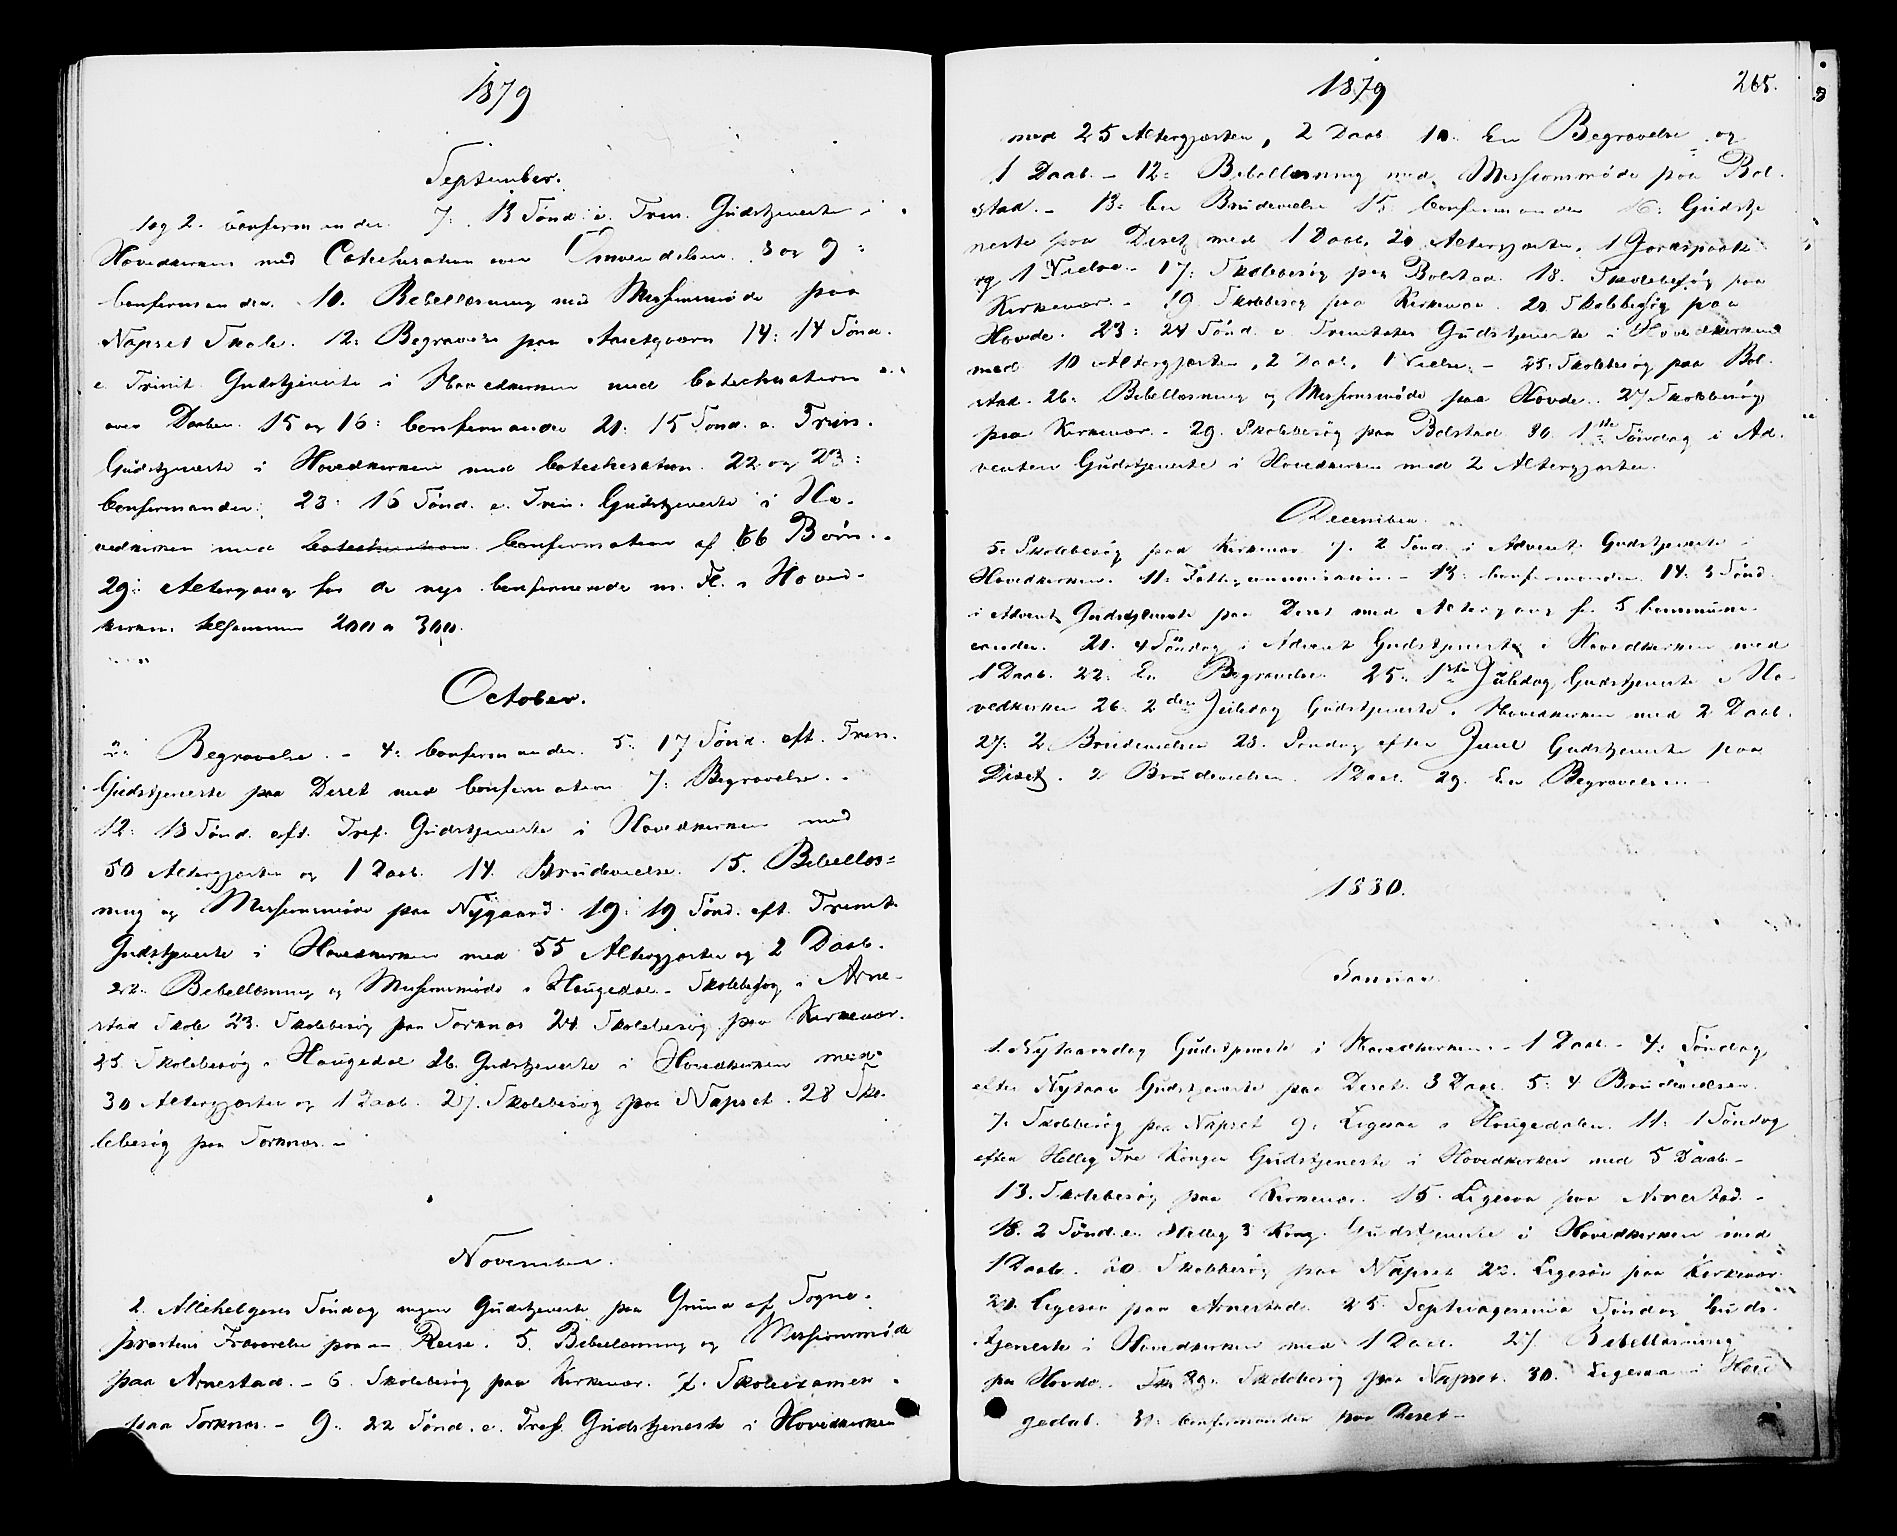 1879
September.
1 og 2. Confirmander. 7: 13 Sønd. e. Trin. Gudstjeneste i
Hovedkirken med Catechisation over Omvendelsen. 8 og 9:
Confirmander. 10. Bibellæsning med Missionsmøde paa
Napset Skole. 12: Begravelse paa 14: 14 Sønd.
e. Trinit. Gudstjeneste i Hovedkirken med Catechisation
over Daaben. 15 og 16: Confirmander 21: 15 Sønd. e. Trin.
Gudstjeneste i Hovedkirken med Catechisation. 22 og 23:
Confirmander. 28: 16 Sønd. e. Trin. Gudstjeneste i Ho-
vedkirken med Catechisation Confirmation af 66 Børn.
29: Altergang for de nye Confirmerede m. Fl. i Hoved-
kirken tilsammen 200 a 300.
October.
2: Begravelse. - 4: Confirmander. 5: 17 Sønd. eft. Trin.
Gudstjeneste paa Deset med Confirmation 7: Begravelse. -
12: 18 Sønd. eft. Tref. Gudstjeneste i Hovedkirken med
50 Altergjæster og 1 Daab. 14. Brudevielse. 15. Bibellæs-
ning og Missionsmøde paa Nygaard. 19: 19 Sønd. eft. Trinit.
Gudstjeneste i Hovedkirken med 55 Altergjæster og 2 Daab.
22. Bibellæsning og Missionsmøde i Haugedal. Skolebesøg i Arne-
stad Skole 23. Skolebesøg paa Torknæs 24. Skolebesøg paa Kirkevær.
25. Skolebesøg i Haugedal 26. Gudstjeneste i Hovedkirken med
30 Altergjæster og 1 Daab. 27. Skolebesøg paa Napset. 28 Sko-
lebesøg paa Torknæs. -
November.
2. Allehelgens Søndag ingen Gudstjeneste paa Grund af Sogne-
præstens Fraværelse paa en Reise. 5. Bibellæsning og Missionsmøde
paa Arnestad. - 6. Skolebesøg paa Kirkevær. 7. Skoleexamen
paa Torknæs. - 9: 22 Sønd. e. Tref. Gudstjeneste i Hovedkirken
1879
265.
med 25 Altergjæster, 2 Daab. 10. En Begravelse og
1 Daab. - 12: Bibellæsning med Missionsmøde paa Bol-
stad. - 13: En Brudevielse 15. Confirmander 16: Gudstje-
neste paa Deset med 1 Daab, 20 Altergjæster, 1 Jordspaak.
og 1 Vielse. - 17: Skolebesøg paa Bolstad. 18. Skolebesøg paa
Kirkevær. - 19. Skolebesøg paa Kirkevær. 20 Skolebesøg paa
Hovde. 23: 24 Sønd. e. Trinitatis Gudstjeneste i Hovedkirken
med 10 Altergjæster, 2 Daab, 1 Vielse. - 25: Skolebesøg paa Bol-
stad. 26: Bibellæsning og Missionsmøde paa Hovde. 27 Skolebesøg
paa Kirkevær. - 29. Skolebesøg paa Bolstad 30. 1ste Søndag i Ad-
venten Gudstjeneste i Hovedkirken med 2 Altergjæster.
December.
5. Skolebesøg paa Kirkevær 7. 2 Sønd. i Advent Gudstjeneste i
Hovedkirken. 11: Fattigcommission - 13: Confirmander. 14: 3 Sønd.
i Advent Gudstjeneste paa Deset med Altergang for 5 Communi-
canter. 21. 4 Søndag i Advent Gudstjeneste i Hovedkirken med
1 Daab. 22: En Begravelse 25: 1ste Juledag Gudstjeneste i Ho-
vedkirken 26. 2den Juledag Gudstjeneste i Hovedkirken med 2 Daab.
27: 2 Brudevielser 28. Søndag efter Juul Gudstjeneste paa
Diset. 2 Brudevielser. 1 Daab. 29. En Begravelse. -
1880.
Januar.
1. Nytaarsdag Gudstjeneste i Hovedkirken. - 1 Daab - 4: Søndag
efter Nytaar Gudstjeneste paa Deset. 3 Daab. 5: 4 Brudevielser
7: Skolebesøg paa Napset 9: Ligesaa i Haugedalen. 11: 1 Søndag
efter Hellig Tre Konger Gudstjeneste i Hovedkirken med 5 Daab. -
13. Skolebesøg paa Kirkevær. 15. Ligesaa paa Arnestad. -
18. 2 Sønd. e. Hellig 3 Kong. Gudstjeneste i Hovedkirken med
1 Daab. 20. Skolebesøg paa Napset 22. Ligesaa paa Kirkevær.
23. Ligesaa paa Arnestad. 25. Septuagesima Søndag Guds-
tjeneste i Hovedkirken med 1 Daab. 27. Bibellæsning
paa Hovde. 29. Skolebesøg paa Napset. 30. Ligesaa i Hau-
gedal. 31: Confirmander paa Deset. -